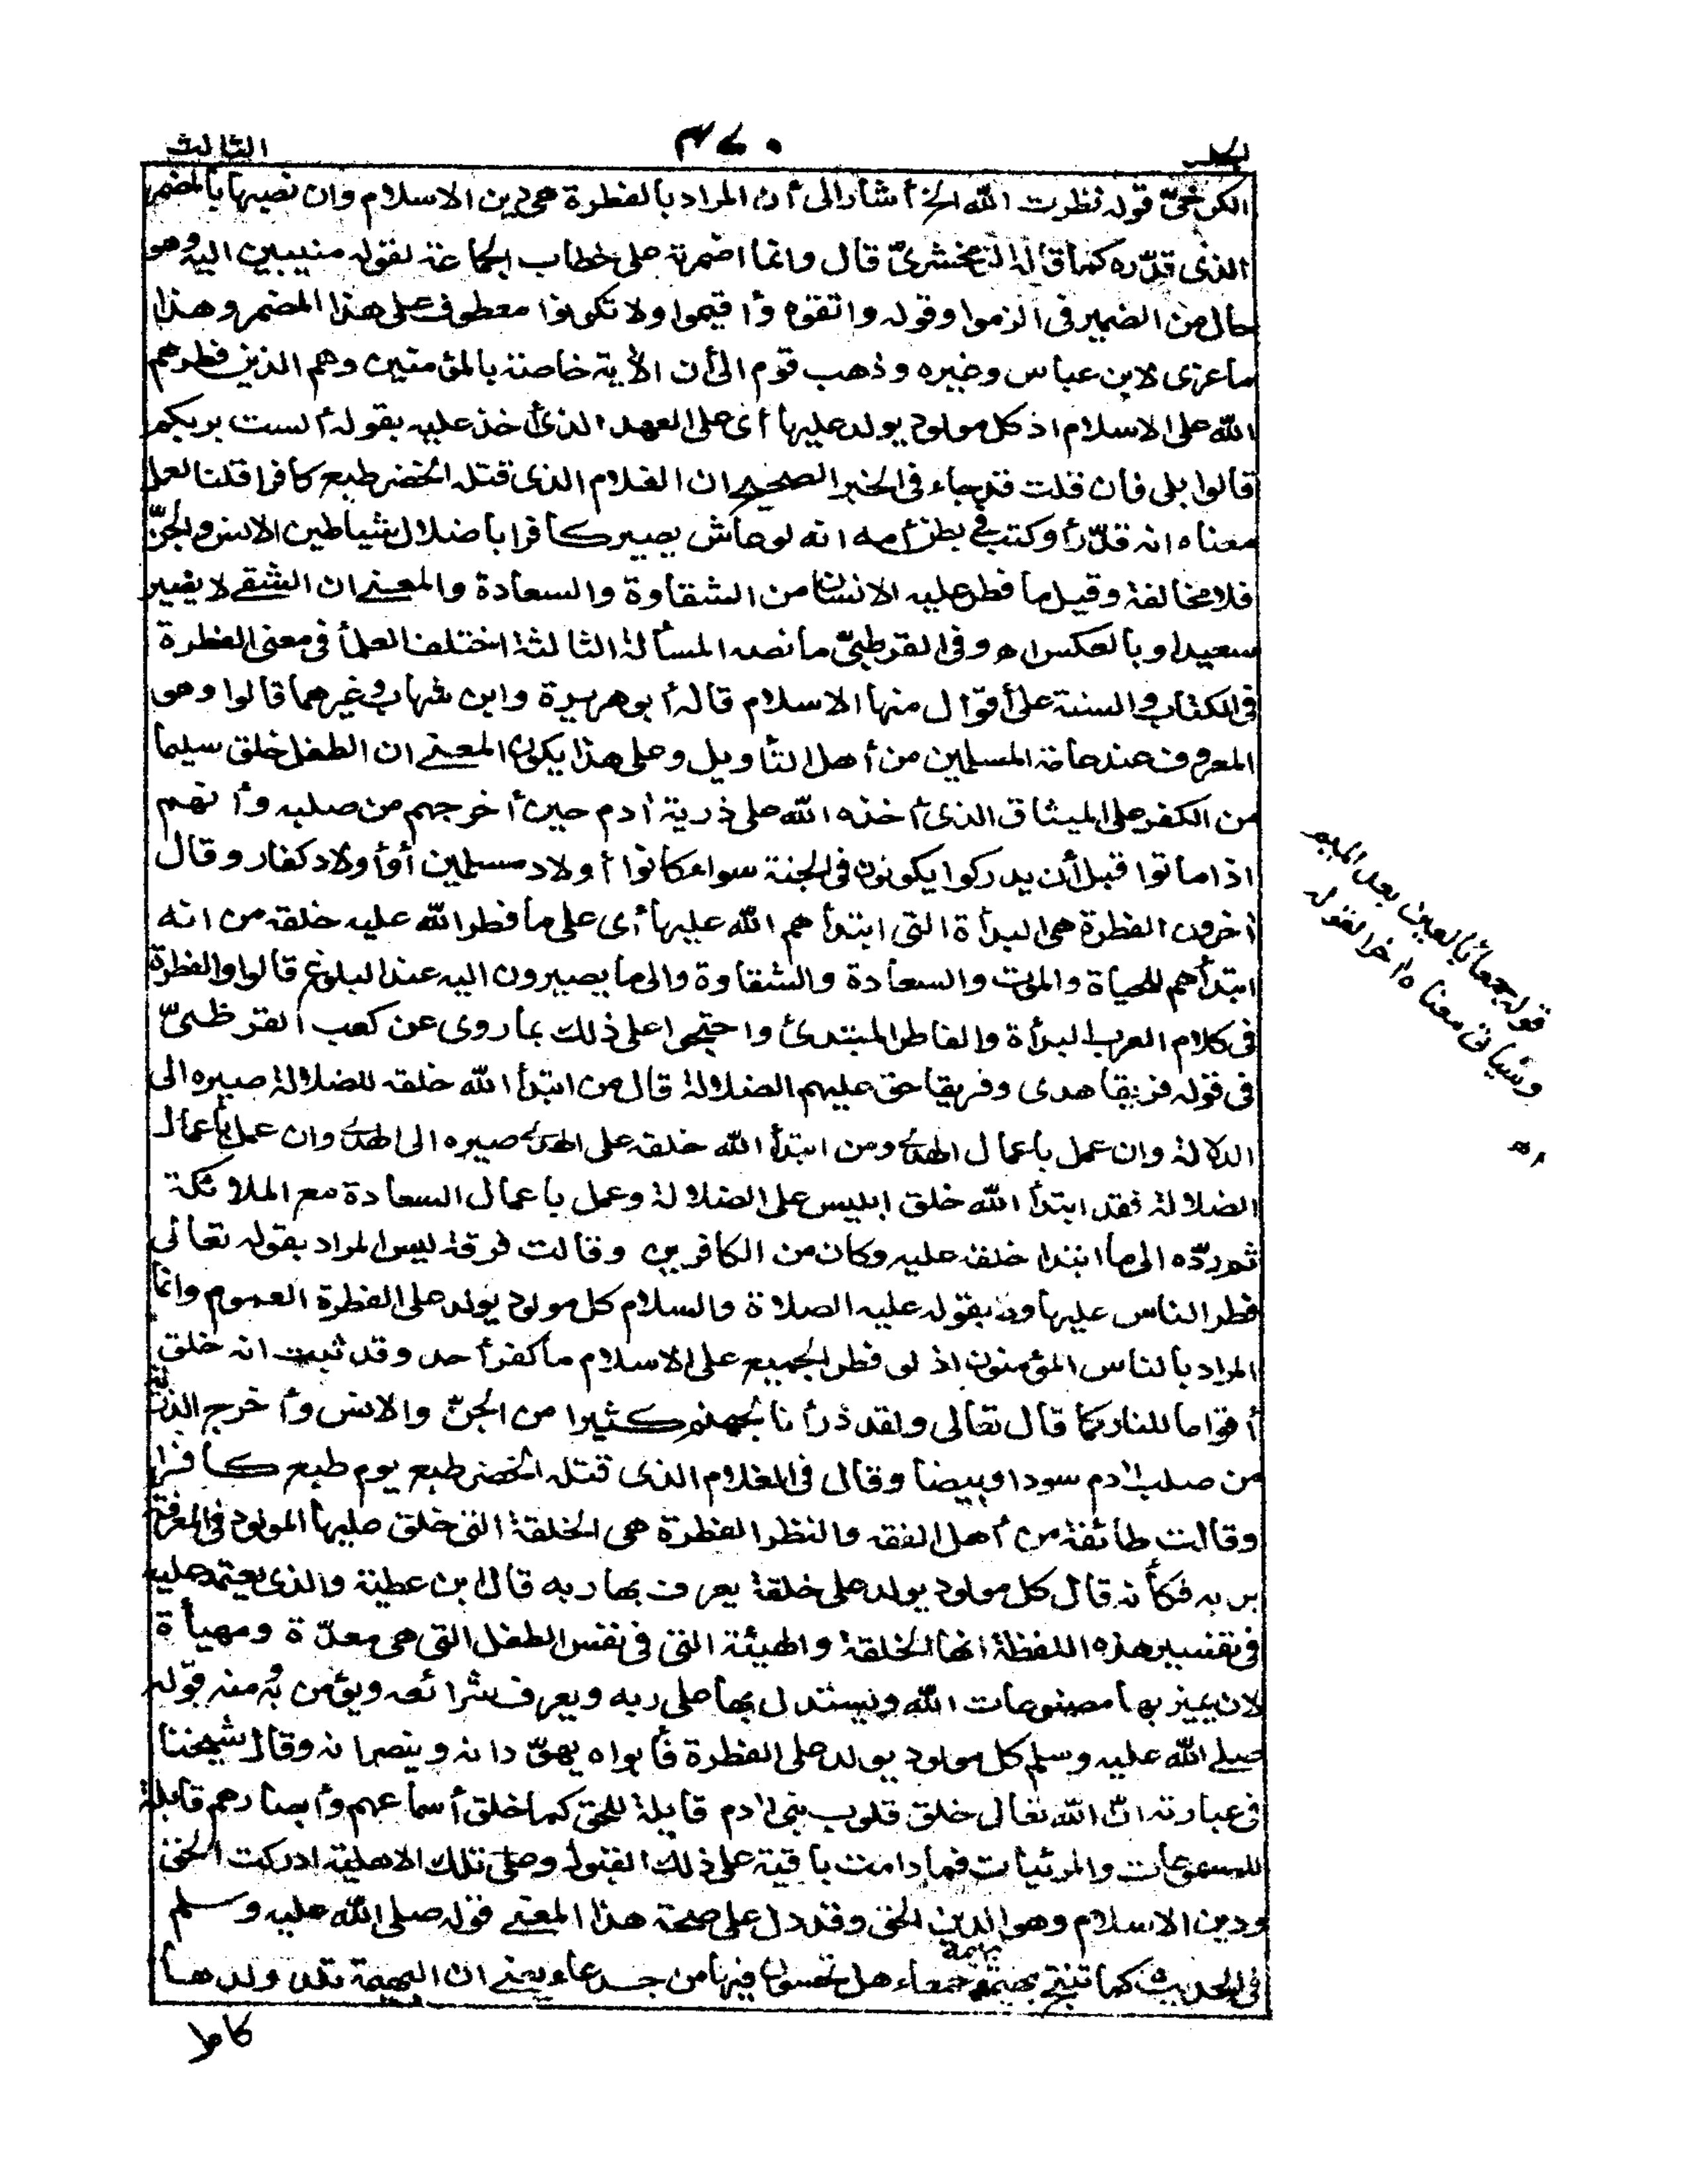 الجلد
٣٧٠
الثالث
الكرخيّ قوله فطرت الله الخ أشار الى أن المراد بالفطرة هى دين الاسلام وان نصبها بالمضمر
الذى قدّره كما قاله الزمخشريّ قال وانما اضمرته على خطاب الجماعة لقوله منيبين اليه وهو
حال من الضمير فى الزموا وقوله واتقوه وأقيموا ولا تكونوا معطوف على هذا المضمر وهذا
ما عزى لابن عباس وغيره وذهب قوم الى أن الآية خاصة بالمؤمنين وهم الذين فطرهم
الله على الاسلام اذ كل مولود يولد عليها أى على العهد الذى أخذ عليه بقوله ألست بربكم
قالوا بلى فان قلت قد جاء فى الخبر الصحيح ان الغلام الذى قتله الخضر طبع كافرا قلنا لعل
معناه انه قدّر أو كتب فى بطن أمه انه لو عاش يصير كافرا باضلال شياطين الانس والجنّ
فلا مخالفة وقيل ما فطر عليه الانسان من الشقاوة والسعادة والمعنى ان الشقى لا يغير
سعيدا وبالعكس اه وفى القرطبيّ ما نصه المسألة الثالثة اختلف العلمأ فى معنى الفطرة
فى الكتاب والسنة على أقوال منها الاسلام قاله أبو هريرة وابن شهاب وغيرهما قالوا وهو
المعروف عند عامة المسلمين من أهل التأويل وعلى هذا يكون المعنى ان الطفل خلق سليما
من الكفر على الميثاق الذى أخذه الله على ذرية آدم حين أخرجهم من صلبه وأنهم
اذا ماتوا قبل أن يدركوا يكونون فى الجنة سواء كانوا أولاد مسلمين أو أولاد كفار وقال
آخرون الفطرة هى البدأة التى ابتدأهم الله عليها أى على ما فطر الله عليه خلقه من انه
ابتدأهم للحياة والموت والسعادة والشقاوة والى ما يصيرون اليه عند البلوغ قالوا والفطرة
فى كلام العرب البدأة والفاطر المبتدئ واحتجوا على ذلك بما روى عن كعب القرظىّ
فى قوله فريقا هدى وفريقا حق عليهم الضلالة قال من ابتدأ الله خلقه للضلالة صيره الى
الدلالة وان عمل باعمال الهدى ومن ابتدأ الله خلقه على الهدى صيره الى الهدى وان عمل بأعمال
الضلالة فقد ابتدأ الله خلق ابليس على الضلالة وعمل باعمال السعادة مع الملائكة
ثم ردّه الى ما ابتدا خلقه عليه وكان من الكافرين وقالت فرقة ليس المراد بقوله تعالى
فطر الناس عليها ولا بقوله عليه الصلاة والسلام كل مولود يولد على الفطرة العموم وانما
المراد بالناس المؤمنون اذ لو فطر الجميع على الاسلام ما كفر أحد وقد ثبت انه خلق
أقواما للنار كما قال تعالى ولقد ذرأنا لجهنم كثيرا من الجنّ والانس وأخرج الذرية
من صلب آدم سودا وبيضا وقال فى الغلام الذى قتله الخضر طبع يوم طبع كافرا
وقالت طائفة من أهل الفقه والنظر الفطرة هى الخلقة التى خلق عليها المولود فى المعرفة
بربه فكأنه قال كل مولود يولد على خلقة يعرف بها ربه قال ابن عطية والذى يعتمد عليه
فى تفسير هذه اللفظة انها الخلقة والهيئة التى فى نفس الطفل التى هى معدّة ومهيأة
لان يميز بها مصنوعات الله ويستدل بها على ربه ويعرف شرائعه ويؤمن به ومنه قوله
صلى الله عليه وسلم كل مولود يولد على الفطرة فأبواه يهوّدانه وينصرانه وقال شيخنا
فى عبارته انّ الله تعالى خلق قلوب بنى آدم قابلة للحق كما خلق أسماعهم وأبصارهم قابلة
للمسموعات والمرئيات فما دامت باقية على ذلك القبول وعلى تلك الاهلية ادركت الحق
ودين الاسلام وهو الدين الحق وقد دل على صحة هذا المعنى قوله صلى الله عليه وسلم
فى الحديث كما تنتج بهيمة بهيمة جمعاء هل تحسون فيها من جدعاء يعنى ان البهيمة تلد ولدها
كامل
قوله جمعا بالعين بعد الميم
وسيأتى معناه آخر القوله
اه